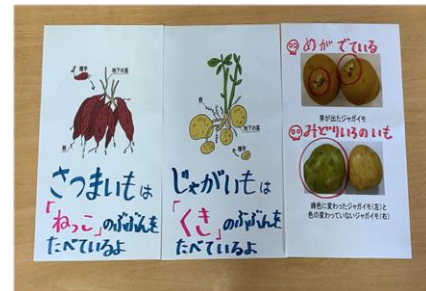 種芋
地下の茎
根
さつまいもは
「ねっこ」のぶぶんを
たべているよ
根
地下の茎
種芋
じゃがいもは
「くき」のぶぶんを
たべているよ
めがでている
芽が出たジャガイモ
みどりいろのいも
緑色に変わったジャガイモ(左)と
色の変わっていないジャガイモ(右)